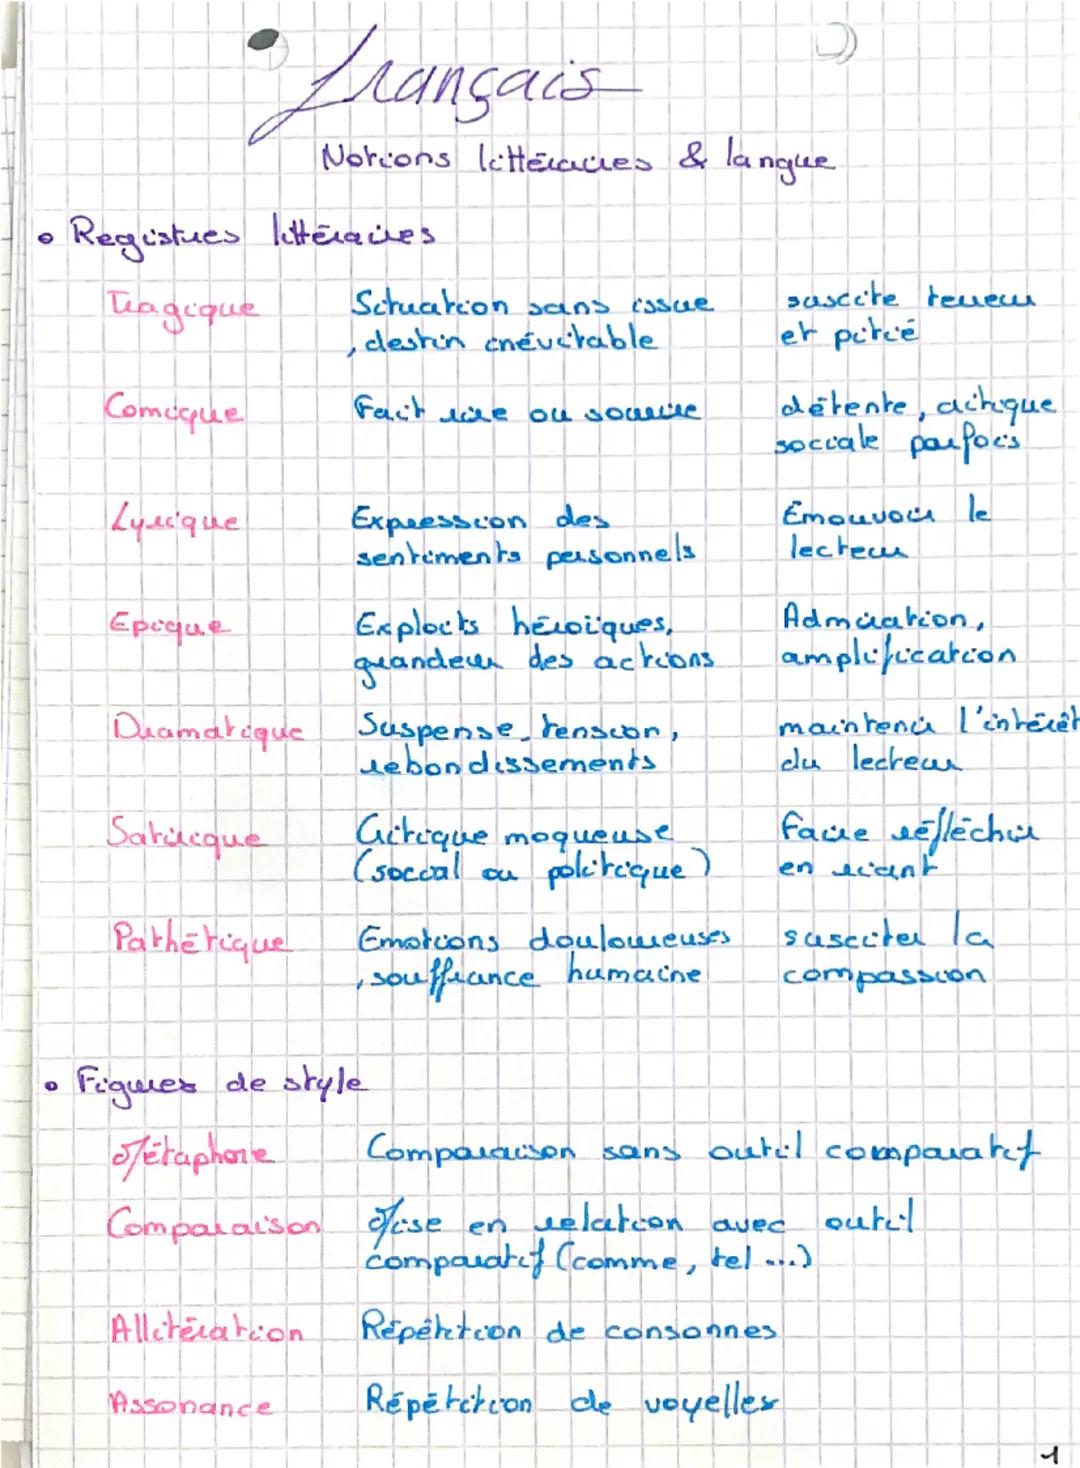 Français
Notions littéraires & langue
• Registres littéraires
Tragique Situation sans issue suscite terreur
, destin inévitable et pitié
Comique Fait rire ou sourire détente, critique
sociale parfois
Lyrique Expression des Émouvoir le
sentiments personnels lecteur
Epique Exploits héroïques, Admiration,
grandeur des actions amplification
Dramatique Suspense, tension, maintenir l'intérêt
rebondissements du lecteur
Satirique Critique moqueuse faire réfléchir
(social ou politique) en riant
Pathétique Emotions douloureuses susciter la
, souffrance humaine compassion
• Figures de style
Métaphore Comparaison sans outil comparatif
Comparaison Mise en relation avec outil
comparatif (comme, tel ...)
Allitération Répétition de consonnes
Assonance Répétition de voyelles
1